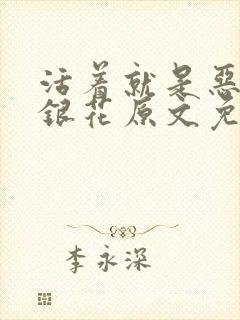 活着就是惡
銀花原文免
李永深